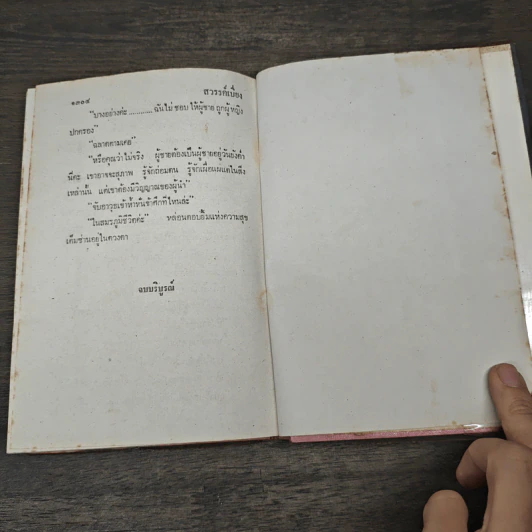 ๑๓๑๔
สวรรค์เบี่ยง
"บางอย่างค่ะ ............ ฉันไม่ ชอบ ให้ผู้ชาย ถูกผู้หญิง
ปกครอง"
"ฉลาดตามเคย"
"หรือคุณว่าไม่จริง ผู้ชายต้องเป็นผู้ชายอยู่วันยังค่ำ
นี่คะ เขาอาจจะสุภาพ รู้จักถ่อมตน รู้จักเผื่อแผ่แต่ในสิ่ง
เหล่านั้น แต่เขาต้องมีวิญญาณของผู้นำ"
"จับอาวุธเข้าห้ำหั่นข้าศึกที่ไหนล่ะ"
"ในสมรภูมิชีวิตค่ะ" หล่อนตอบยิ้มแห่งความสุข
เต็มซ่านอยู่ในดวงตา
จบบริบูรณ์